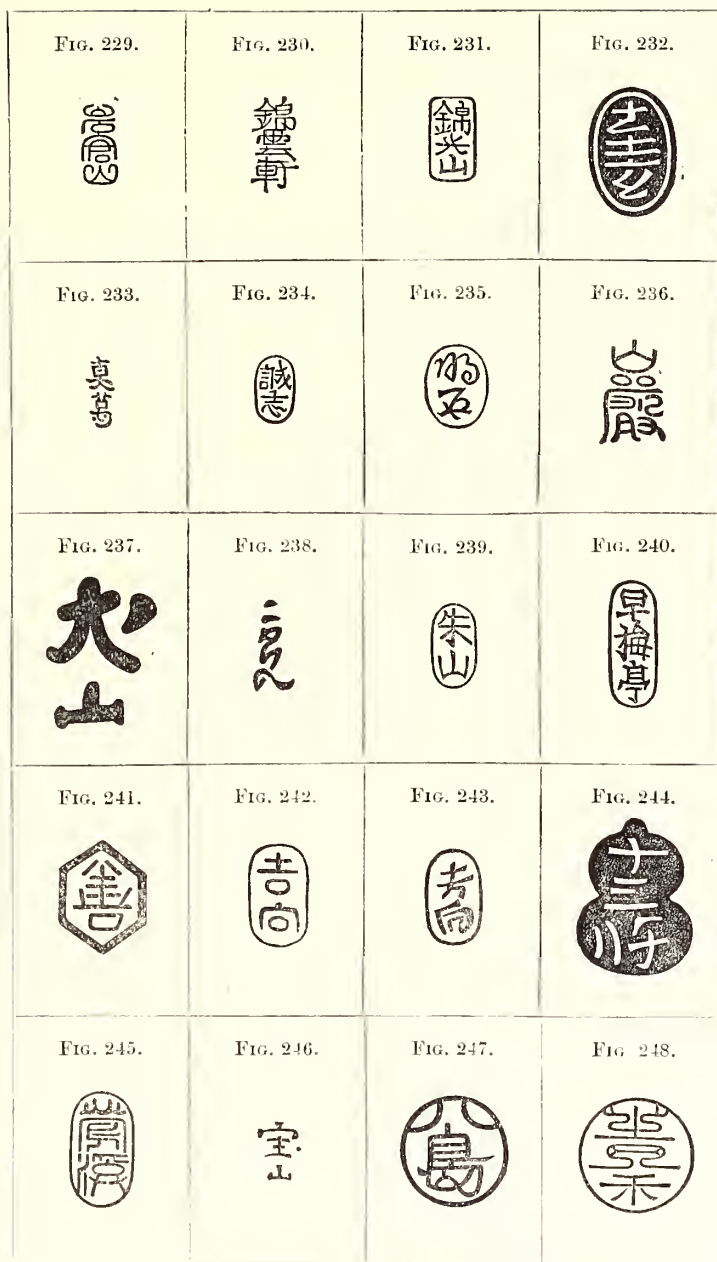 FIG. 229.
FIG. 230.
FIG. 231.
FIG. 232.
岩倉山
錦雲軒
錦光山
FIG. 233.
FIG. 234.
FIG. 235.
FIG. 236.
誠志
明石
巌
FIG. 237.
FIG. 238.
FIG. 239.
FIG. 240.
犬山
朱山
早梅亭
FIG. 241.
FIG. 242.
FIG. 243.
FIG. 244.
善
吉向
吉向
十三軒
FIG. 245.
FIG. 246.
FIG. 247.
FIG. 248.
宝山
八島